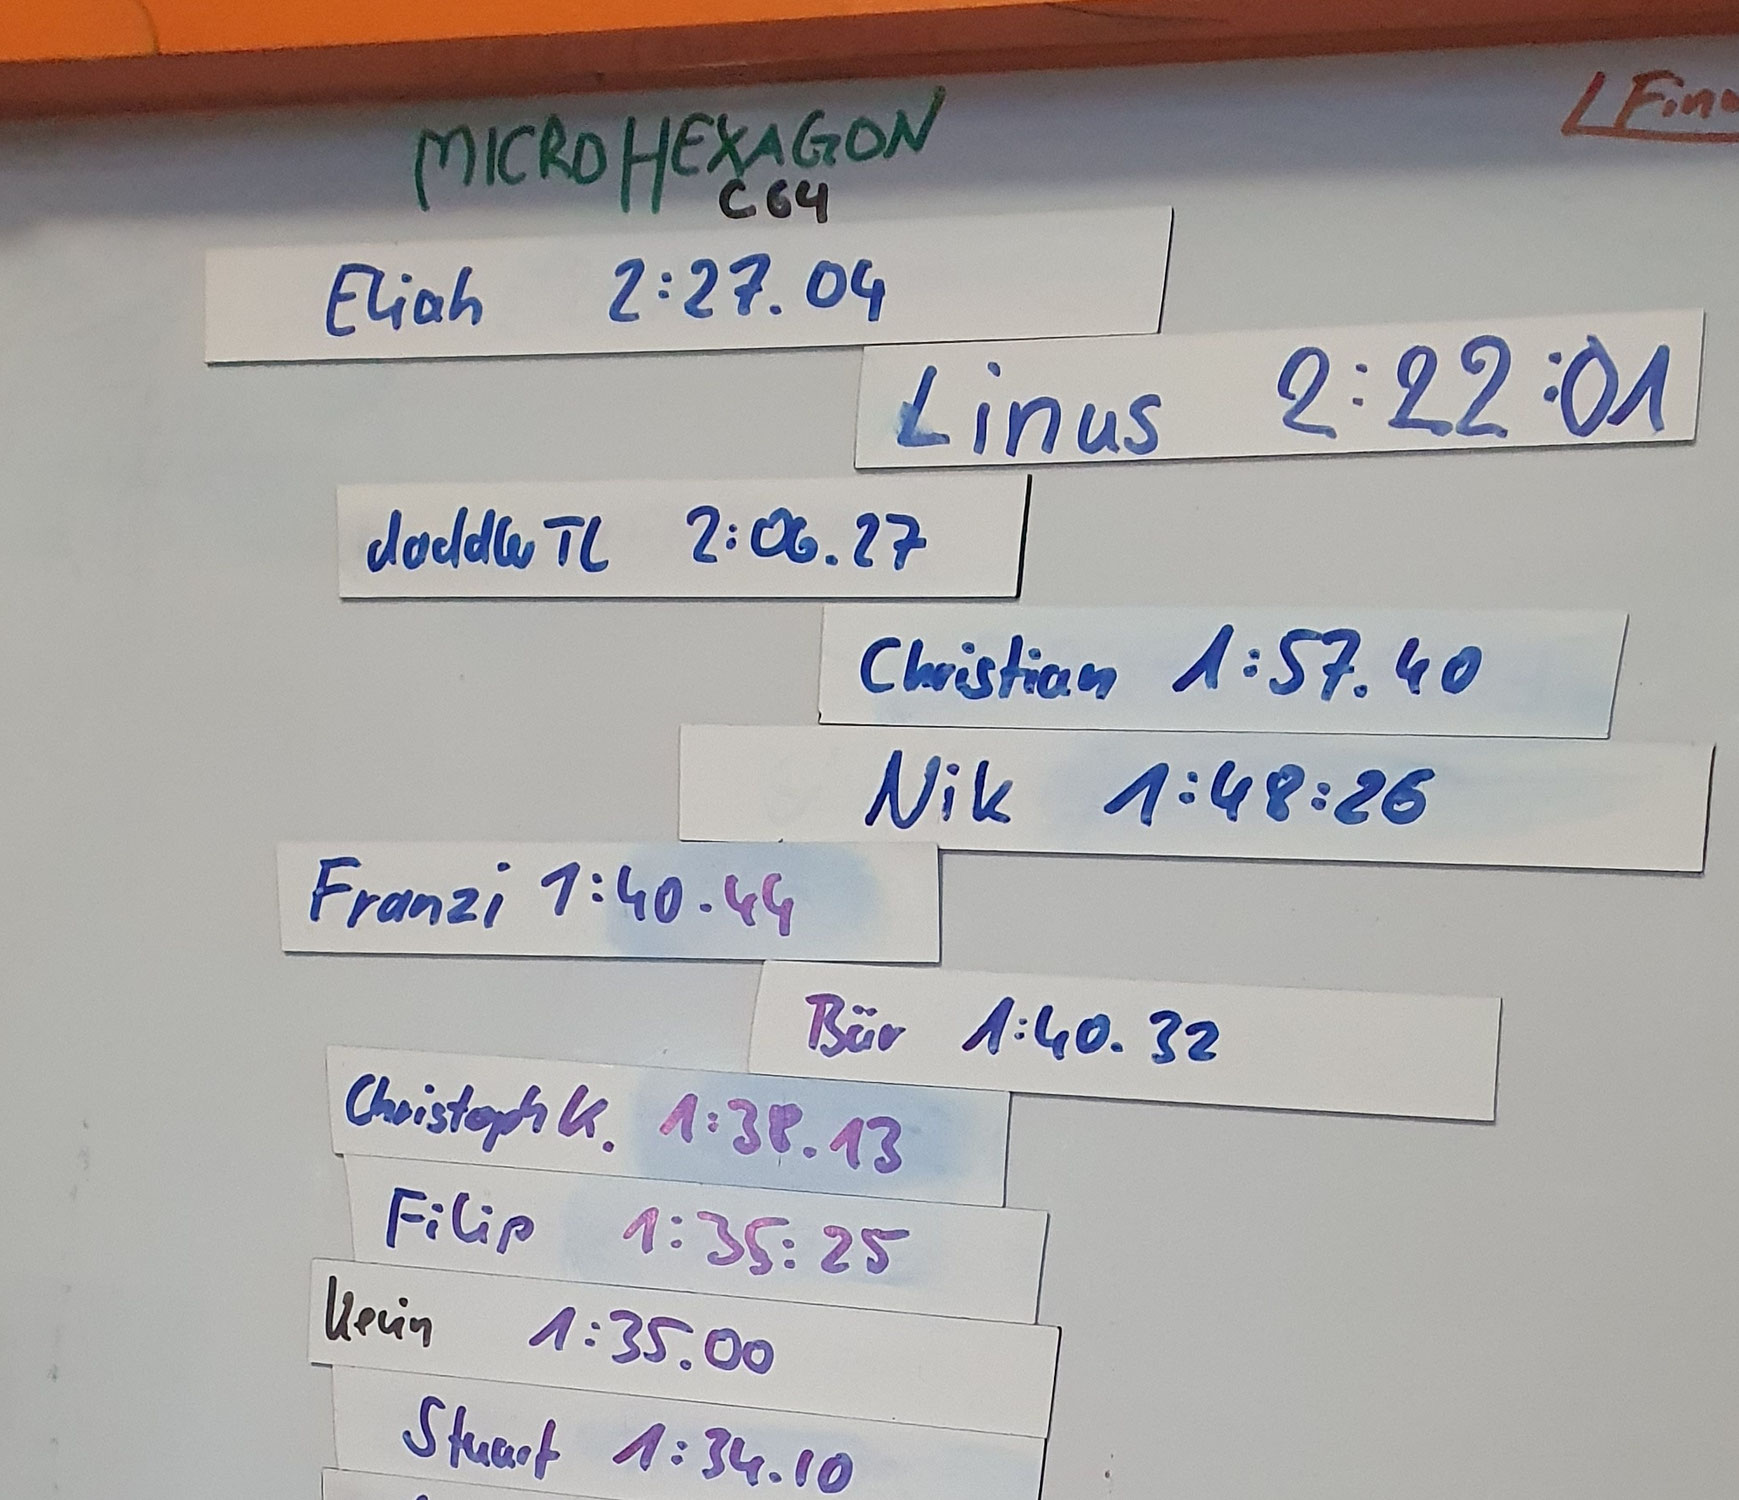 MICROHEXAGON
C64
Eliah 2:27.04
Linus 2:22:01
doddleTL 2:06.27
Christian 1:57.40
Nik 1:48:26
Franzi 1:40.44
Bär 1:40.32
Christoph K. 1:38.13
Filip 1:35:25
Kevin 1:35.00
Stuart 1:34.10